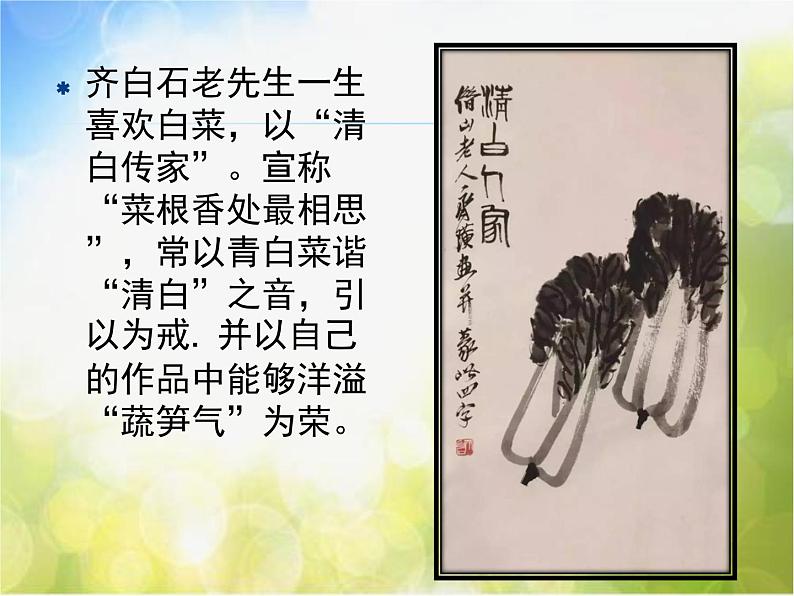 齐白石老先生一生
喜欢白菜，以“清
白传家”。宣称
“菜根香处最相思
”，常以青白菜谐
“清白”之音，引
以为戒. 并以自己
的作品中能够洋溢
“蔬笋气”为荣。
清白人家
借山老人齐璜画并篆此四字